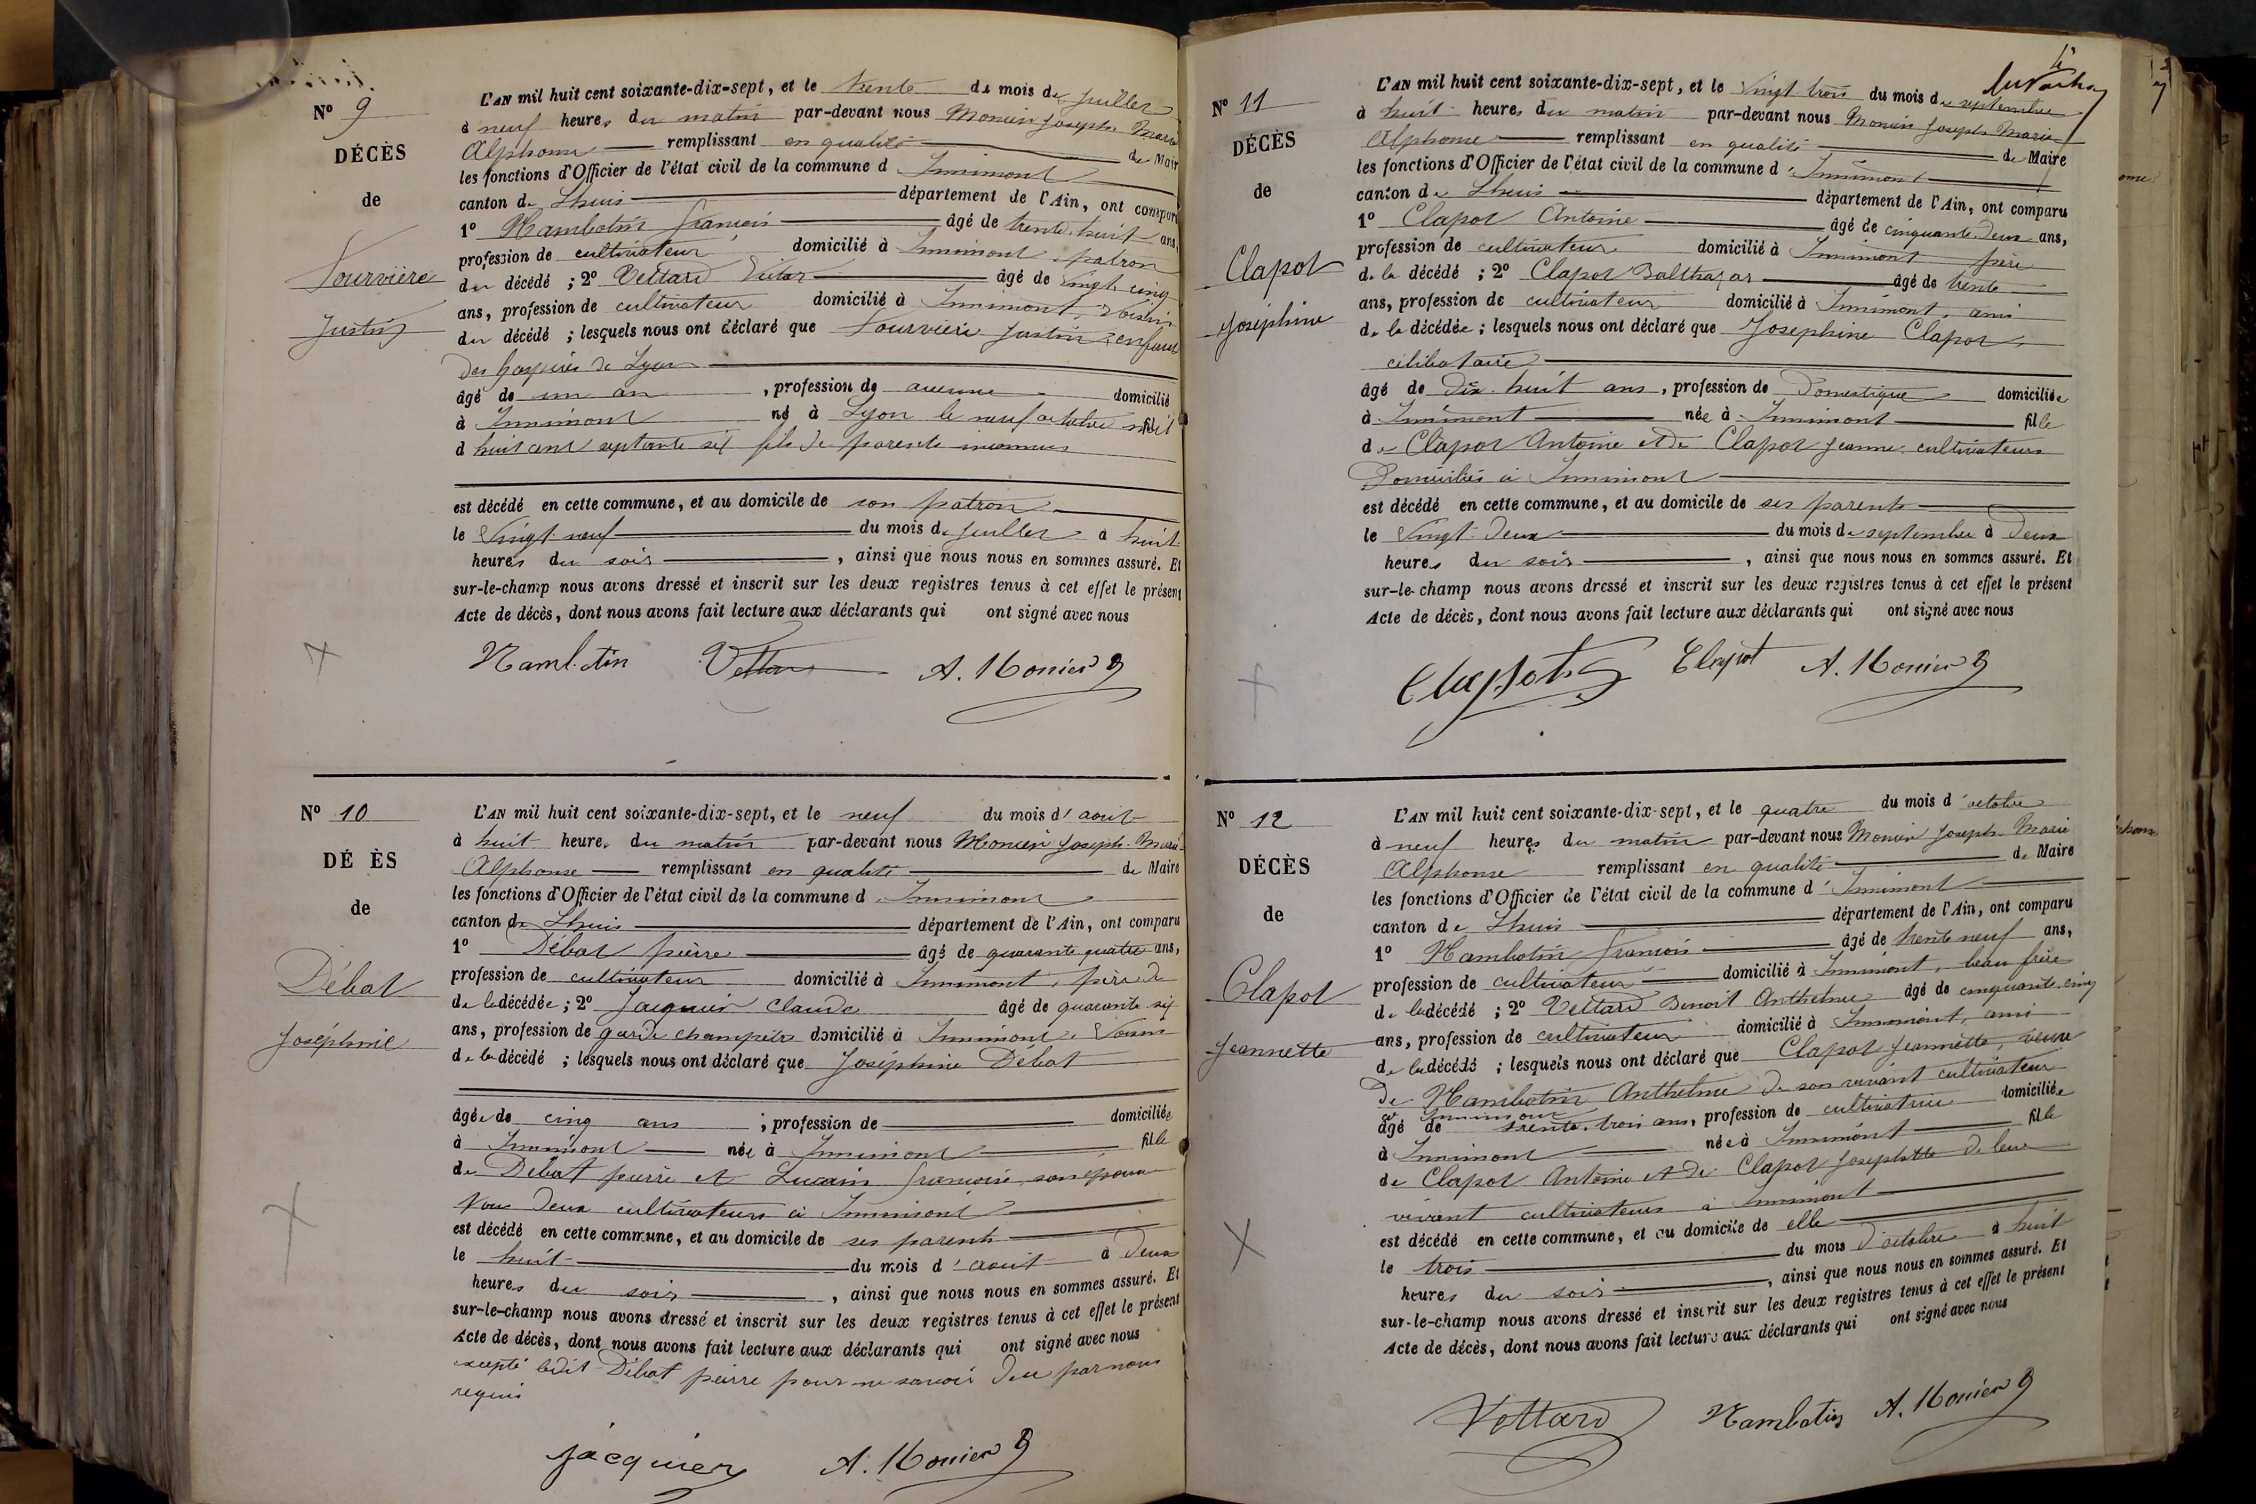 Nº 9
DÉCÈS
de
Fourvière
Justin
L'AN mil huit cent soixante-dix-sept, et le trente du mois de juillet
à neuf heures du matin par-devant nous Monier Joseph Marie
Alphonse remplissant en qualité de Mair
les fonctions d'Officier de l'état civil de la commune d'Innimont
canton de Lhuis département de l'Ain, ont comparu
1º Hambotin françois âgé de trente-huit ans,
profession de cultivateur domicilié à Innimont, patron
du décédé ; 2º Vettard Victor âgé de vingt cinq
ans, profession de cultivateur domicilié à Innimont, voisin
du décédé ; lesquels nous ont déclaré que Fourvière Justin enfant
des hospices de Lyon
âgé de un an , profession de aucune domicilié
à Innimont né à Lyon le neuf octobre mil
d huit cent septante six fils de parents inconnus
est décédé en cette commune, et au domicile de son patron
le vingt-neuf du mois de juillet à huit
heures du soir , ainsi que nous nous en sommes assuré. Et
sur-le-champ nous avons dressé et inscrit sur les deux registres tenus à cet effet le présent
Acte de décès, dont nous avons fait lecture aux déclarants qui ont signé avec nous
Hambotin Vettard A. Monier
Nº 10
DÉ ÈS
de
Débat
Joséphine
L'AN mil huit cent soixante-dix-sept, et le neuf du mois d'aout
à huit heures du matin par-devant nous Monier Joseph-Marie
Alphonse remplissant en qualité de Maire
les fonctions d'Officier de l'état civil de la commune d'Innimont
canton de Lhuis département de l'Ain, ont comparu
1º Débat pierre âgé de quarante quatre ans,
profession de cultivateur domicilié à Innimont, père de
de la décédée ; 2º Jacquier Claude âgé de quarante six
ans, profession de garde champêtre domicilié à Innimont, voisin
de la décédé ; lesquels nous ont déclaré que Joséphine Débat
âgée de cinq ans ; profession de domiciliée
à Innimont née à Innimont fille
de Débat pierre et Lucain françoise, son épouse
tous deux cultivateurs à Innimont
est décédé en cette commune, et au domicile de ses parents
le huit du mois d'aout à deux
heures du soir , ainsi que nous nous en sommes assuré. Et
sur-le-champ nous avons dressé et inscrit sur les deux registres tenus à cet effet le présent
Acte de décès, dont nous avons fait lecture aux déclarants qui ont signé avec nous
excepté ledit Débat pierre pour ne savoir de ce par nous
requis
Jacquier A. Monier
Nº 11
DÉCÈS
de
Clapot
Josephine
L'AN mil huit cent soixante-dix-sept, et le vingt trois du mois de septembre
à huit heures du matin par-devant nous Monier Joseph Marie
Alphonse remplissant en qualité de Maire
les fonctions d'Officier de l'état civil de la commune d'Innimont
canton de Lhuis département de l'Ain, ont comparu
1º Clapot Antoine âgé de cinquante-deux ans,
profession de cultivateur domicilié à Innimont père
de la décédé ; 2º Clapot Balthazar âgé de trente
ans, profession de cultivateur domicilié à Innimont, ami
de la décédée ; lesquels nous ont déclaré que Josephine Clapot
célibataire
âgé de dix-huit ans, profession de Domestique domiciliée
à Innimont née à Innimont fille
de Clapot Antoine et de Clapot Jeanne, cultivateurs
Domiciliés à Innimont
est décédé en cette commune, et au domicile de ses parents
le vingt-deux du mois de septembre à deux
heures du soir , ainsi que nous nous en sommes assuré. Et
sur-le-champ nous avons dressé et inscrit sur les deux registres tenus à cet effet le présent
Acte de décès, dont nous avons fait lecture aux déclarants qui ont signé avec nous
Clapot Clapot A. Monier
Nº 12
DÉCÈS
de
Clapot
Jeannette
L'AN mil huit cent soixante-dix-sept, et le quatre du mois d'octobre
à neuf heures du matin par-devant nous Monier Joseph Marie
Alphonse remplissant en qualité de Maire
les fonctions d'Officier de l'état civil de la commune d'Innimont
canton de Lhuis département de l'Ain, ont comparu
1º Hambotin françois âgé de trente neuf ans,
profession de cultivateur domicilié à Innimont, beau frère
de la décédé ; 2º Vettard Benoit Anthelme âgé de cinquante-cinq
ans, profession de cultivateur domicilié à Innimont, ami
de la décédé ; lesquels nous ont déclaré que Clapot Jeannette, veuve
de Hambotin Anthelme de son vivant cultivateur
à Innimont
âgé de trente-trois ans, profession de cultivatrice domiciliée
à Innimont née à Innimont fille
de Clapot Antoine et de Clapot Josephtte de leur
vivant cultivateurs à Innimont
est décédé en cette commune, et au domicile de elle
le trois du mois d'octobre à huit
heures du soir , ainsi que nous nous en sommes assuré. Et
sur-le-champ nous avons dressé et inscrit sur les deux registres tenus à cet effet le présent
Acte de décès, dont nous avons fait lecture aux déclarants qui ont signé avec nous
Vettard Hambotin A. Monier